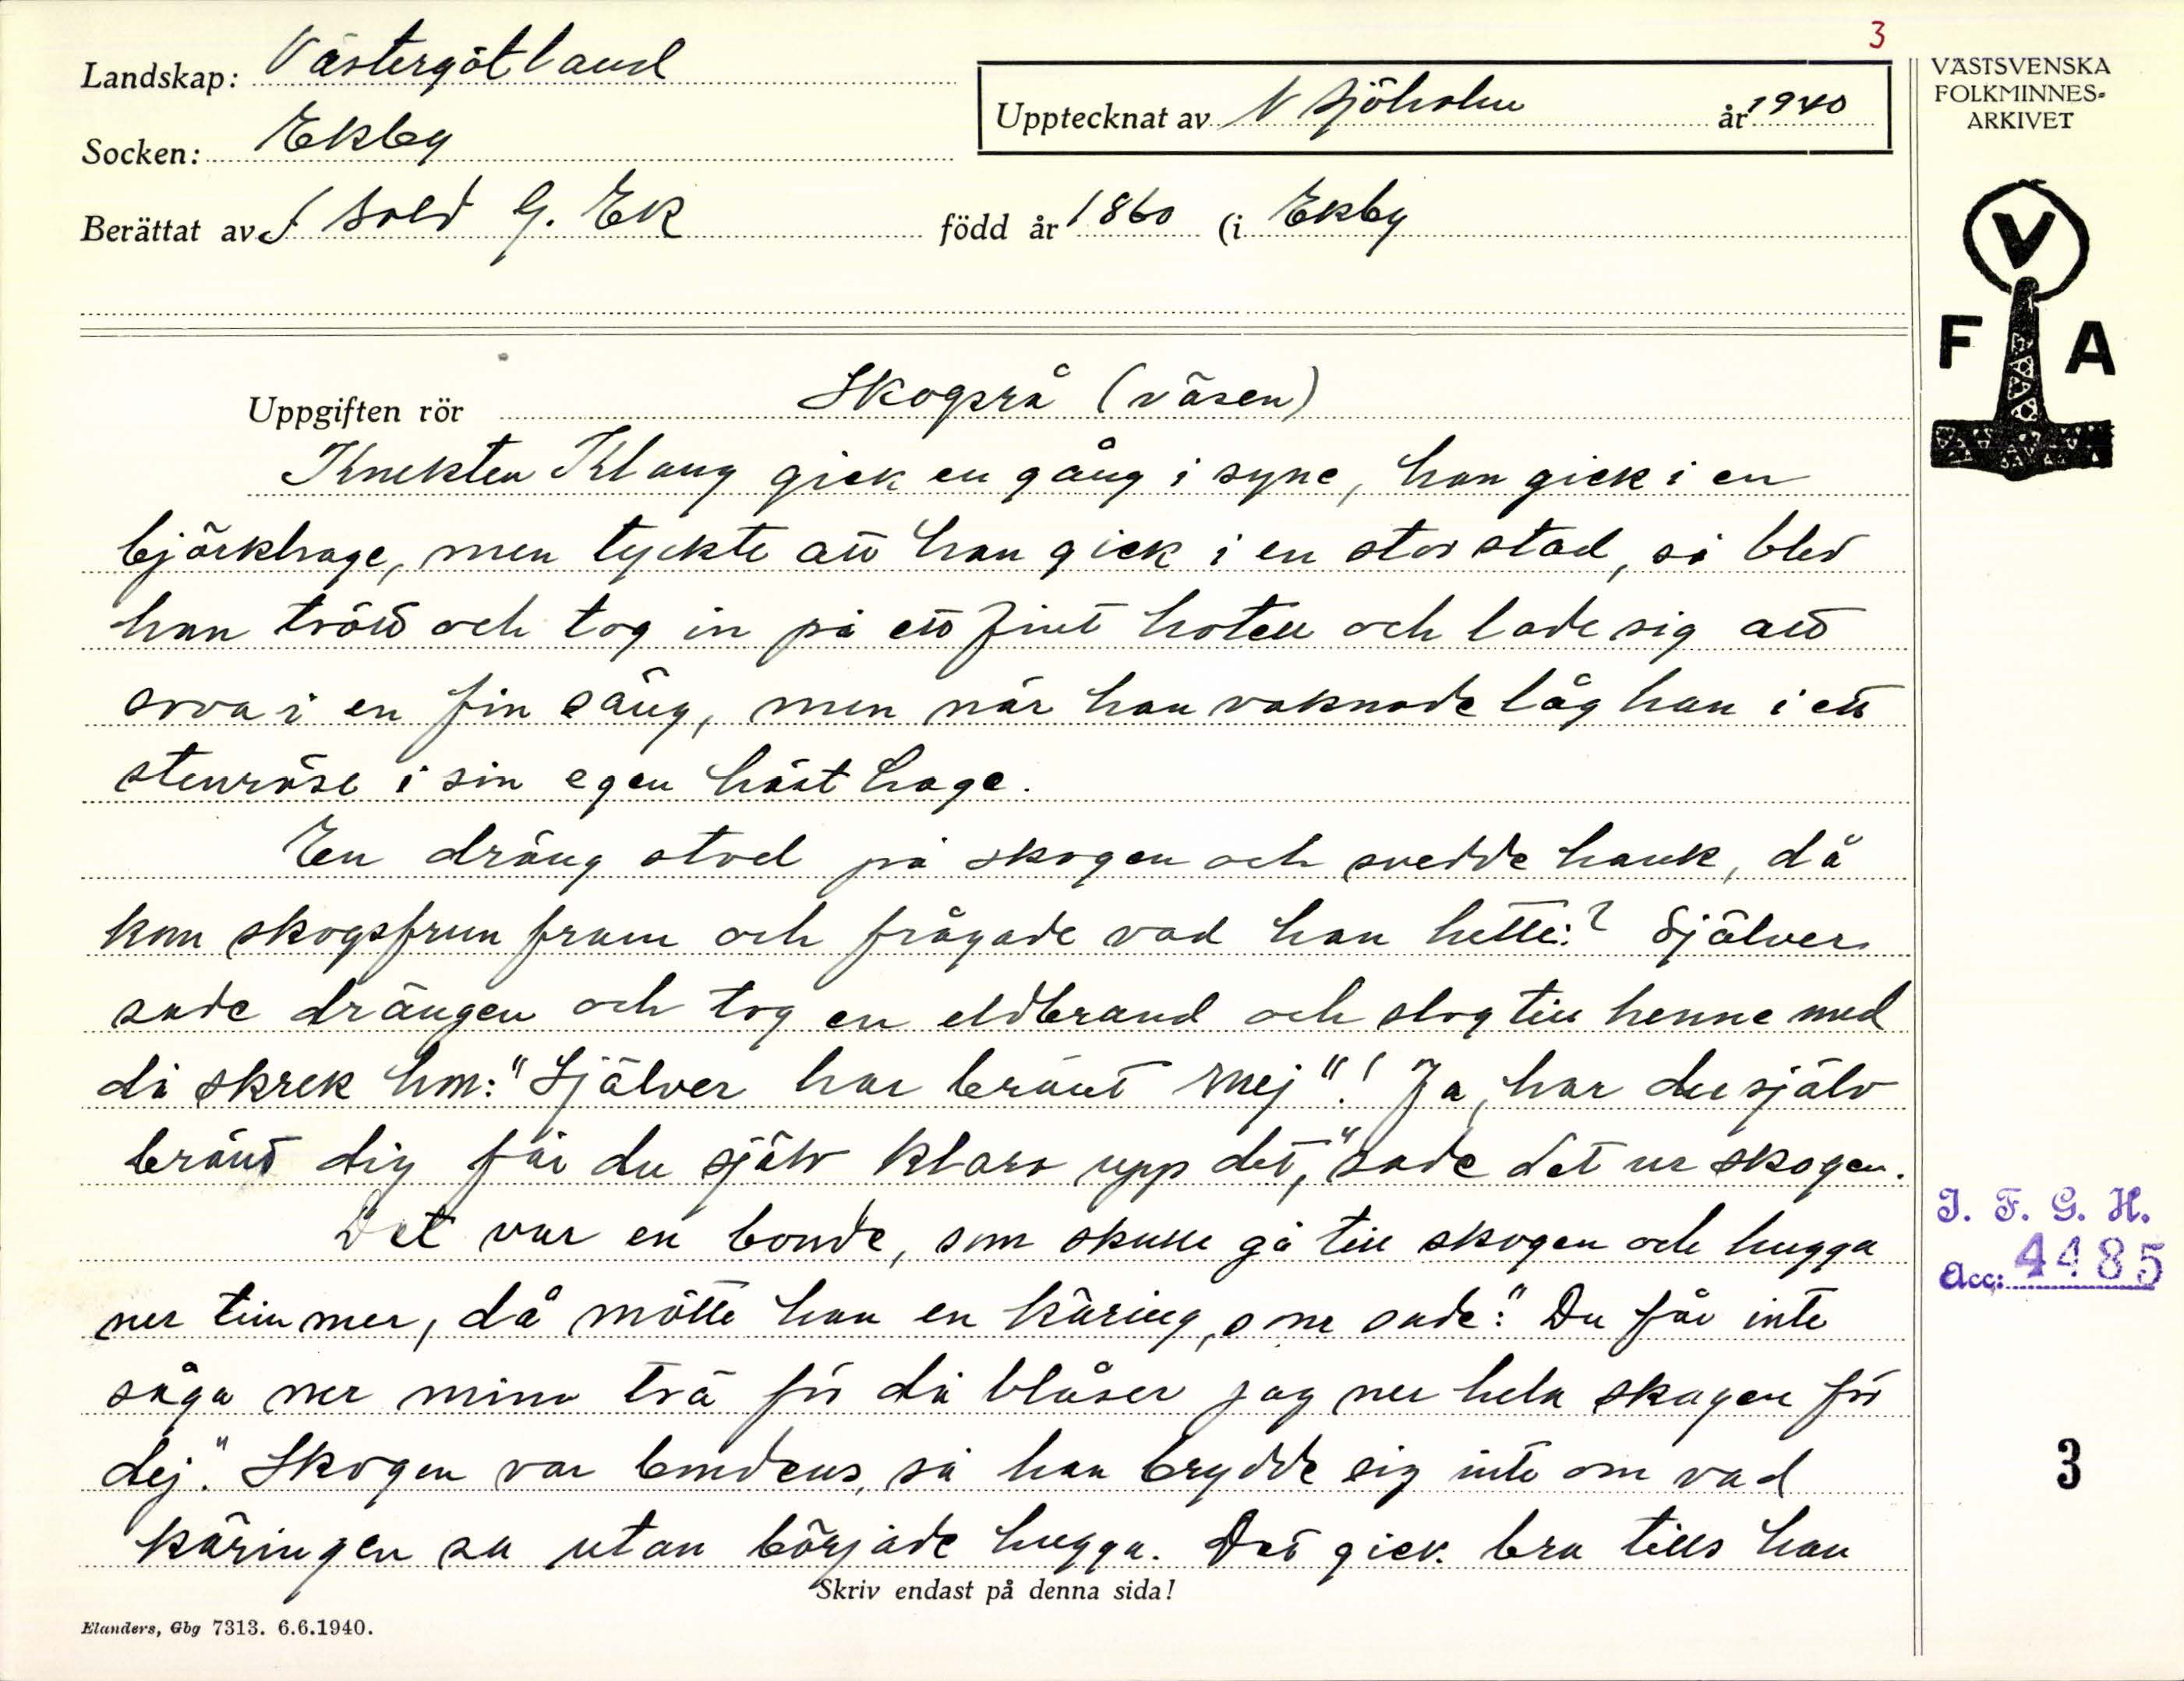 3
Landskap: Västergötland
Upptecknat av N Sjöholm år 1940
Socken: Ekby
Berättat av f Sold G. Ek född år 1860 (i Ekby
VÄSTSVENSKA
FOLKMINNES-
ARKIVET
V
F A
Uppgiften rör Skogsrå (väsen)
Knekten Klang gick en gång i syne, han gick i en
björkhage, men tyckte att han gick i en stor stad, så blev
han trött och tog in på ett fint hotell och lade sig att
sova i en fin säng, men när han vaknade låg han i ett
stenröse i sin egen hästhage.
En dräng stod på skogen och svedde hank, då
kom skogsfrun fram och frågade vad han hette? Själver
sade drängen och tog en eldbrand och slog till henne med
då skrek hon: "Själver har bränt mej"! Ja, har du själv
bränt dig får du själv klara upp det," sade det ur skogen.
Det var en bonde, som skulle gå till skogen och hugga
ner timmer, då mötte han en käring, som sade: "Du får inte
såga ner mina trä för då blåser jag ner hela skogen för
dej." Skogen var bondens, så han brydde sig inte om vad
käringen sa utan började hugga. Det gick bra tills han
Skriv endast på denna sida!
Elanders, Gbg 7313. 6.6.1940.
I. F. G. H.
Acc: 4485
3